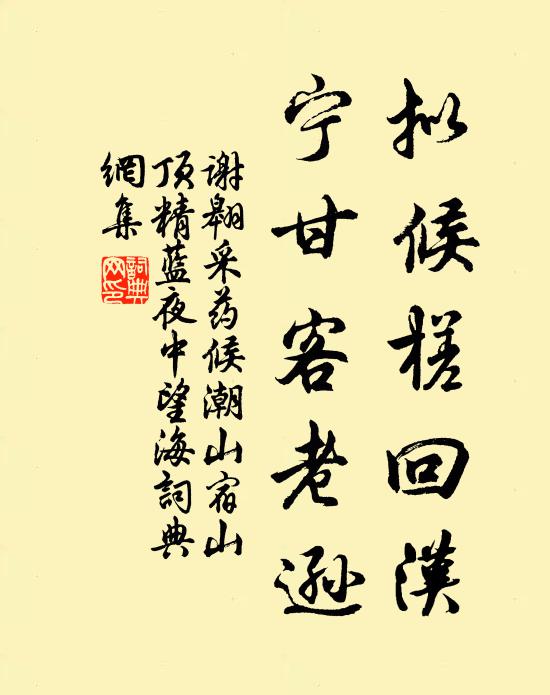 拟候槎回漢
宁甘客老遜
谢翱采药候潮山宿山
顶精蓝夜中望海詞典
網集
詞典
网印